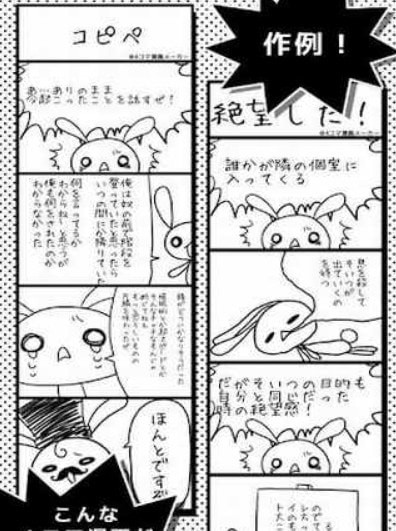 コピペ
@4コマ漫画メーカー
あ…ありのまま
今起こったことを話すぜ!
俺は奴の前で階段を
登っていたと思ったら
いつの間にか降りていた
何を言ってるか
わからねーと思うが
俺も何をされたのか
わからなかった
頭がどうにかなりそうだった
催眠術だか超スピードだとか
そんなチャチなもんじゃ
ほんとです
こんな
作例!
絶望した!
@4コマ漫画メーカー
誰かが隣の個室に
入ってくる
息を殺して
そいつが
出ていくの
を待つ
だがそいつの目的も
自分と同じだった
時の絶望感!